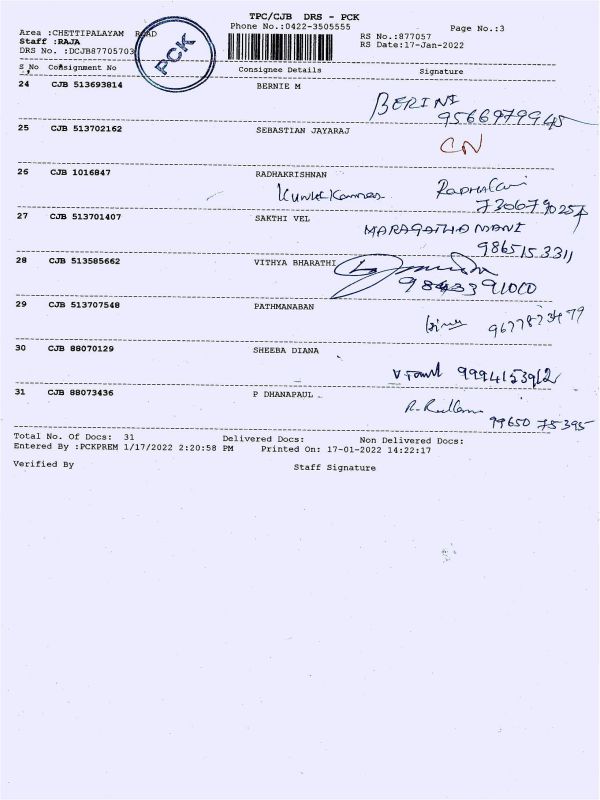 TPC/CJB DRS - PCK
Phone No.:0422-3505555
Page No.:3
Area :CHETTIPALAYAM ROAD
RS No.:877057
Staff :RAJA
RS Date:17-Jan-2022
DRS No. :DCJB87705703
PCK
S No Consignment No Consignee Details Signature
24 CJB 513693814 BERNIE M
BERINI
9566979945
25 CJB 513702162 SEBASTIAN JAYARAJ
CN
26 CJB 1016847 RADHAKRISHNAN
27 CJB 513701407 SAKTHI VEL
MARAGATHAMANI
9865153311
28 CJB 513585662 VITHYA BHARATHI
29 CJB 513707548 PATHMANABAN
30 CJB 88070129 SHEEBA DIANA
9994153912
31 CJB 88073436 P DHANAPAUL
99650 75395
Total No. Of Docs: 31 Delivered Docs: Non Delivered Docs:
Entered By :PCKPREM 1/17/2022 2:20:58 PM Printed On: 17-01-2022 14:22:17
Verified By Staff Signature